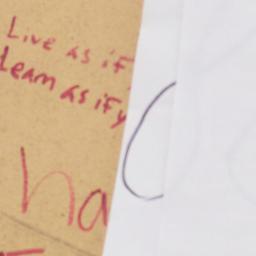 Live as if
Learn as if y
ha